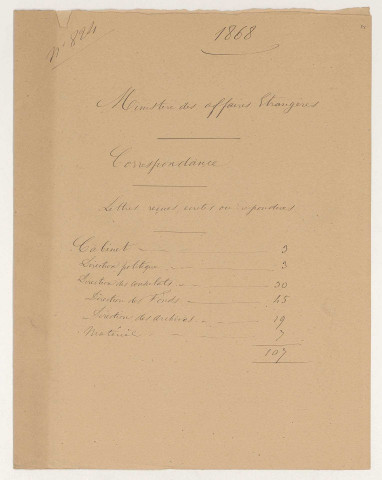 N° 824
1868
Ministère des Affaires Etrangères
Correspondance
Lettres reçues
Cabinet 3
Direction politique 3
Direction des consulats 30
Direction des Fonds 45
Direction des archives 19
Matériel 7
107